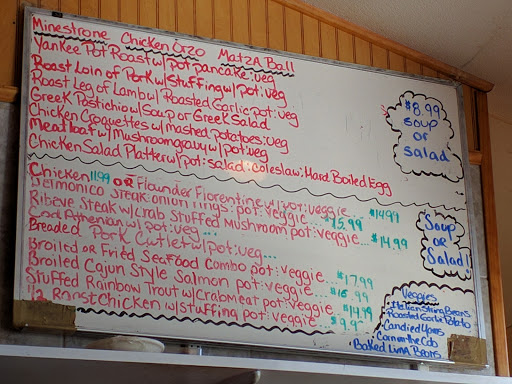 Minestrone Chicken Orzo Matza Ball
Yankee Pot Roast w/ pot pancake : veg
Roast Loin of Pork w/ Stuffing w/ pot : veg
Roast Leg of Lamb w/ Roasted Garlic pot : veg
Greek Pastichio w/ Soup or Greek Salad
Chicken Croquettes w/ mashed potatoes : veg
Meatloaf w/ Mushroom gravy w/ pot : veg
Chicken Salad Platter w/ pot : salad : coleslaw : Hard Boiled Egg
$8.99
soup
or
salad
Chicken 11.99 or Flounder Florentine w/ pot : veggie... $14.99
Delmonico Steak onion rings pot : veggie... $15.99
Ribeye Steak w/ Crab Stuffed Mushroom pot : veggie... $14.99
Cod Athenian w/ pot : veg...
Breaded Pork Cutlet w/ pot : veg...
Broiled or Fried Seafood Combo pot : veggie... $17.99
Broiled Cajun Style Salmon pot : veggie... $15.99
Stuffed Rainbow Trout w/ Crabmeat pot : veggie $14.99
1/2 Roast Chicken w/ stuffing pot : veggie... $9.95
Soup
or
Salad!
Veggies
Italian String Beans
Roasted Garlic Potato
Candied Yams
Corn on the Cob
Baked Lima Beans